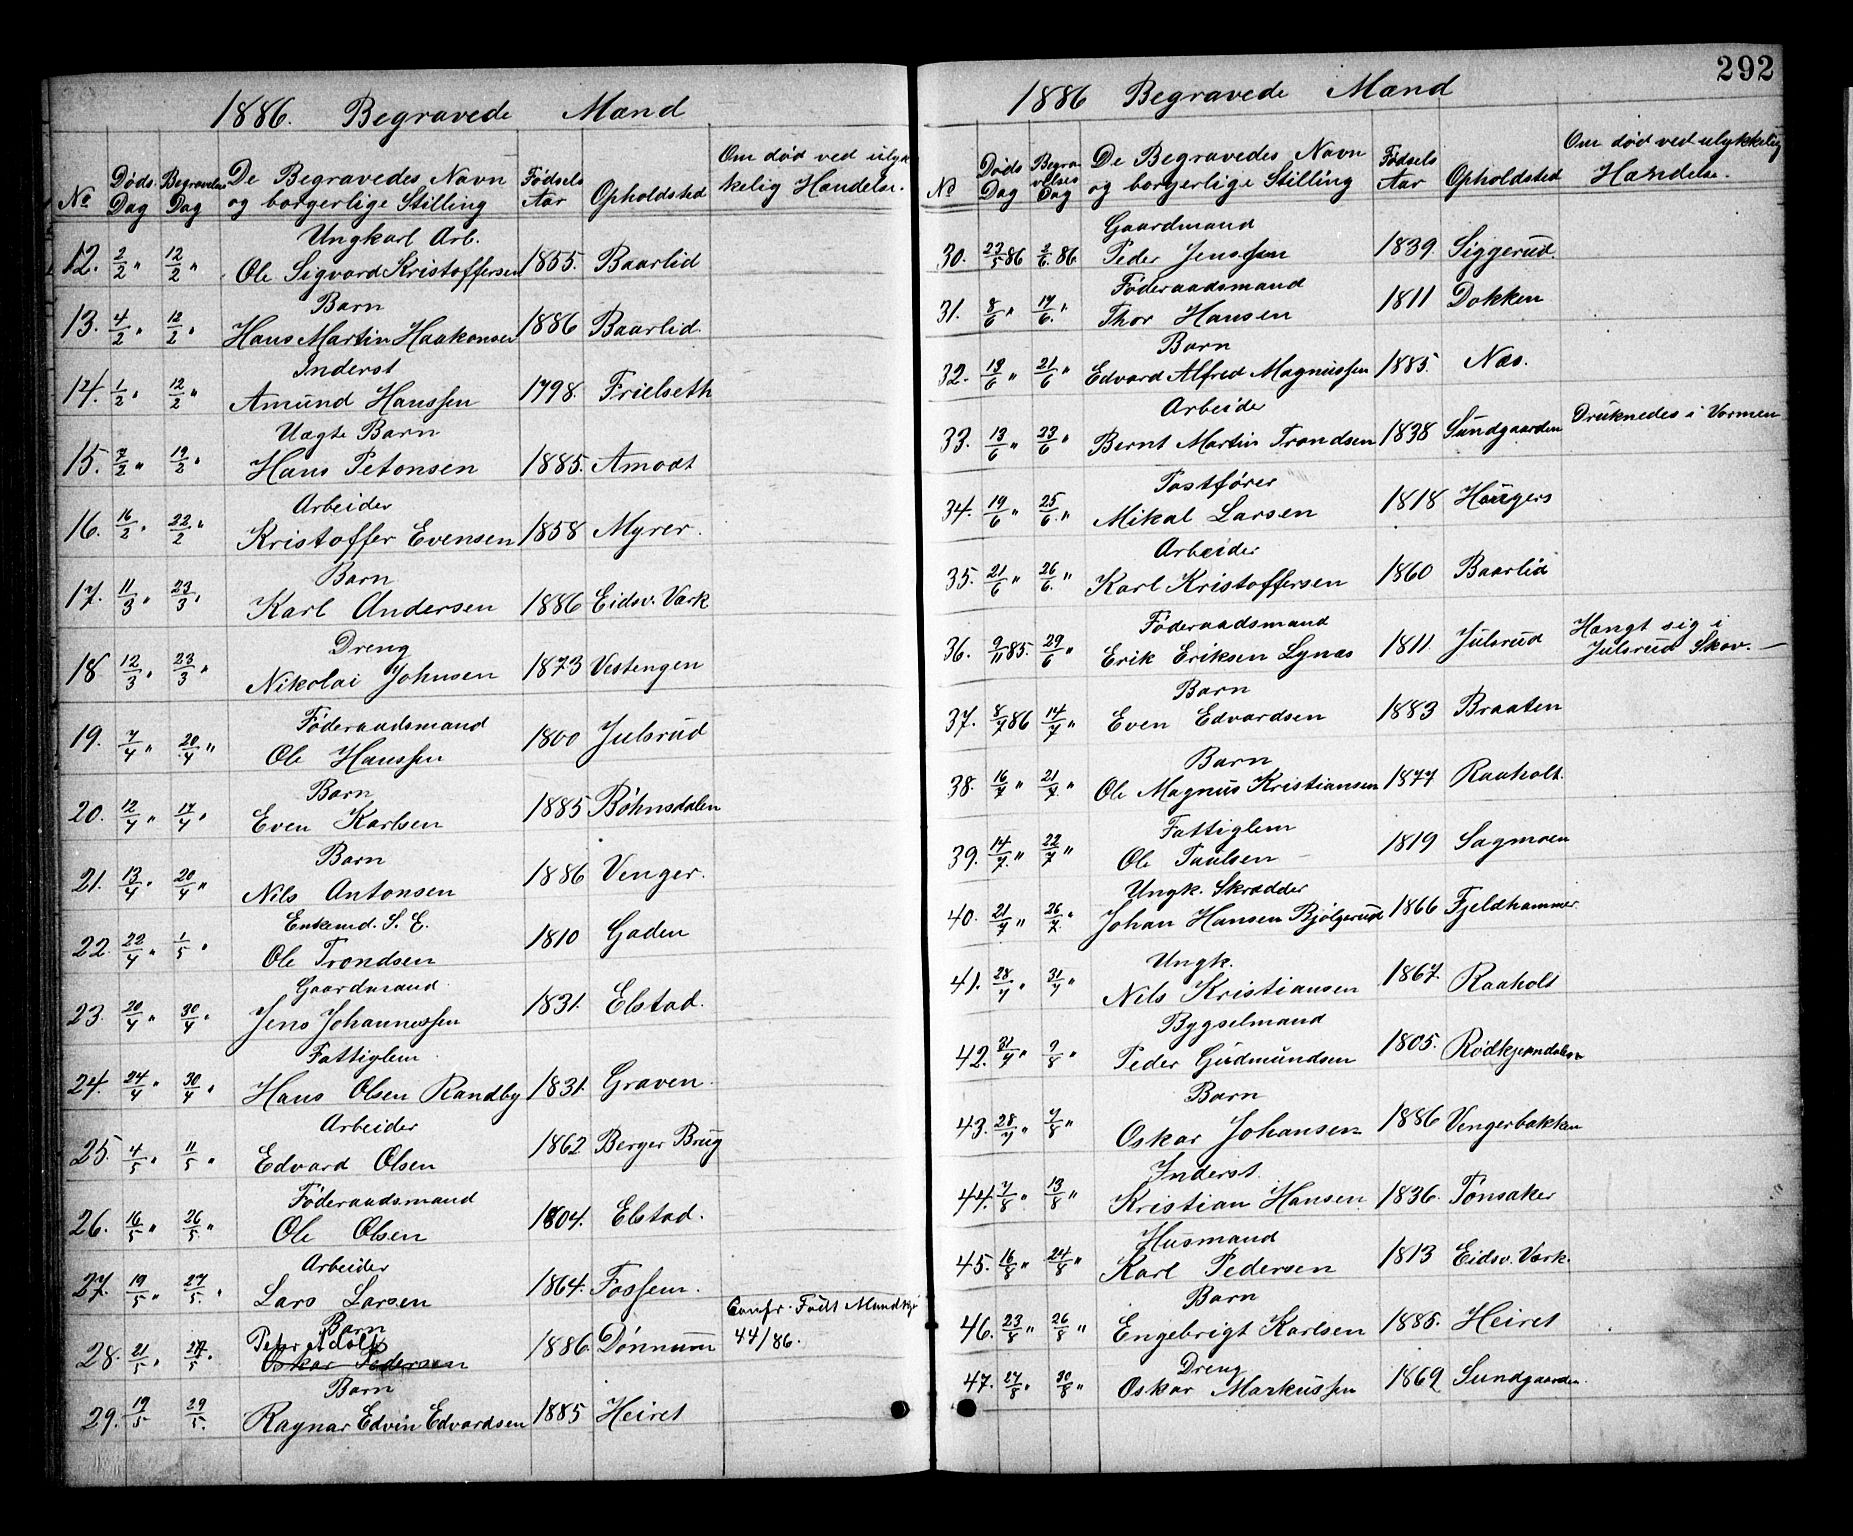 292
1886. Begravede Mænd
No Døds Dag Begravelses Dag De Begravedes Navn og borgerlige Stilling Fødsels Aar Opholdsted Om død ved ulykkelig Hændelse.
Ungkarl Arb.
12. 2/2 " 12/2 " Ole Sigvard Kristoffersen 1855. Baarlid
Barn
13. 4/2 " 12/2 " Hans Martin Haakonsen 1886 Baarlid.
Inderst
14. 1/2 " 12/2 " Amund Hanssen 1798. Frilseth
Uægte Barn
15. 7/2 " 19/2 " Hans Petonsen 1885. Amodt
Arbeider
16. 16/2 " 22/2 " Kristoffer Evensen 1858 Myrer.
Barn
17. 11/3 " 23/3 " Karl Andersen 1886 Eidsv. Værk
Dreng
18 12/3 " 23/3 " Nikolai Johnsen 1873 Vestengen
Føderaadsmand
19. 7/4 " 20/4 " Ole Hanssen 1800 Julsrud
Barn
20. 12/4 " 17/4 " Even Karlsen 1885 Bøhnsdalen
Barn
21. 13/4 " 20/4 " Nils Antonsen 1886 Venger.
Enkemd. S. E.
22. 22/4 " 1/5 " Ole Trondsen 1810 Gaden
Gaardmand
23. 20/4 " 30/4 " Jens Johannessen 1831. Elstad.
Fattiglem
24. 24/4 " 30/4 " Hans Olsen Randby 1831. Graven.
Arbeider
25. 4/5 " 11/5 " Edvard Olsen 1862 Berger Brug
Føderaadsmand
26. 16/5 " 26/5 " Ole Olsen 1804. Elstad.
Arbeider
27. 19/5 " 27/5 " Lars Larsen 1864. Fossem.
Barn Confr. Født Mandkj
Peter Adolf 44/86.
28. 21/5 " 27/5 " Oskar Pedersen 1886 Dønnum
Barn
29. 19/5 29/5. Ragnar Edvin Edvardsen 1885 Heiret
1886 Begravede Mænd
No Døds Dag Begravelses Dag De Begravedes Navn og borgerlige Stilling Fødsels Aar Opholdsted Om død ved ulykkelig Hændelse.
Gaardmand
30. 23/5 86 2/6 86 Peder Jenssen 1839. Siggerud.
Føderaadsmand
31. 8/6 " 17/6 " Thor Hansen 1811 Dokken
Barn
32. 13/6 " 21/6 " Edvard Alfred Magnussen 1885. Næs.
Arbeider
33. 13/6 " 23/6 " Bernt Martin Trondsen 1838 Sundgaarden Druknedes i Vormen
Postfører
34. 19/6 " 25/6 " Mikal Larsen 1818 Haugers
Arbeider
35. 21/6 " 26/6 " Karl Kristoffersen 1860 Baarlid
Føderaadsmand Hængt sig i
36. 9/11 85. 29/6 " Erik Eriksen Lynæs 1811. Julsrud Julsrud Skov. —
Barn
37. 8/7 86 14/7 " Even Edvardsen 1883 Braaten
Barn
38. 16/7 " 21/7 " Ole Magnus Kristiansen 1877 Raaholt.
Fattiglem
39. 14/7 " 22/7 " Ole Paulsen 1819 Sagmoen
Ungk. Skrædder
40. 21/7 " 26/7 " Johan Hansen Bjølgerud 1866 Fjeldhammer.
Ungk.
41. 28/7 " 31/7 " Nils Kristiansen 1867. Raaholt
Bygselmand
42. 31/7 " 7/8 " Peder Gudmundsen 1805. Rødkjerndalen
Barn
43. 28/7 " 7/8 " Oskar Johansen 1886 Vengerbakken
Inderst.
44. 7/8 " 13/8 " Kristian Hansen 1836. Tonsaker
Husmand
45. 16/8 " 24/8 " Karl Pedersen 1813 Eidsv. Værk.
Barn
46. 23/8 " 26/8 " Engebrigt Karlsen 1885. Heiret
Dreng
47. 27/8 " 30/8 " Oskar Markussen 1869 Sundgaarden.